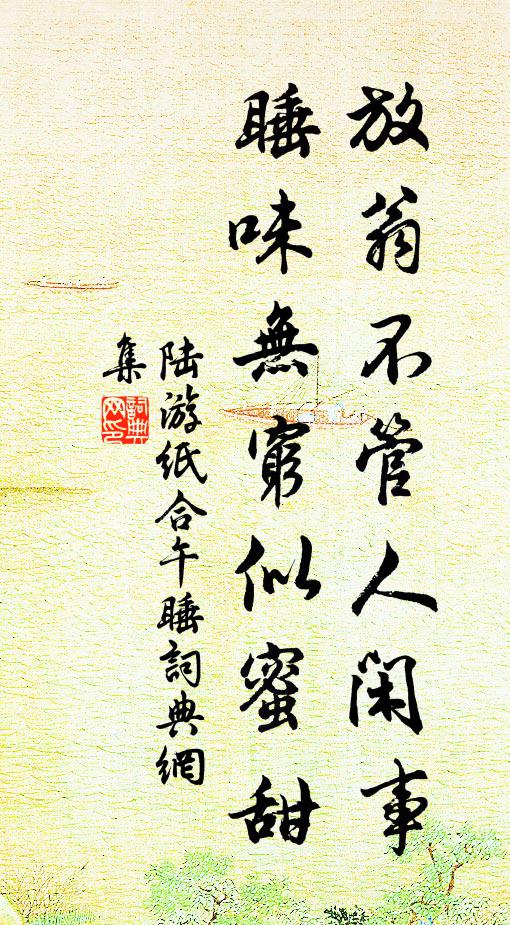 放翁不管人閑事
睡味無窮似蜜甜
陸游紙合午睡詞典網
集
詞典网印